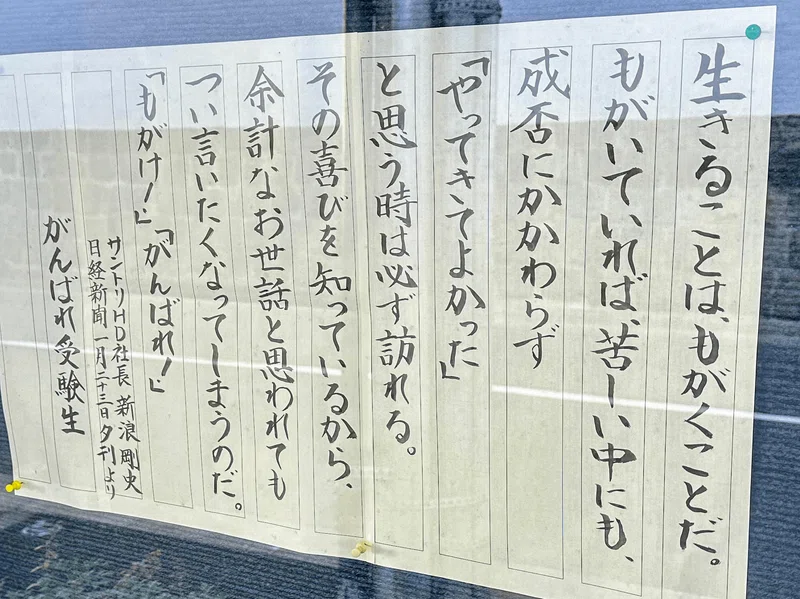 生きることは、もがくことだ。
もがいていれば、苦しい中にも、
成否にかかわらず
「やってきてよかった」
と思う時は必ず訪れる。
その喜びを知っているから、
余計なお世話と思われても
つい言いたくなってしまうのだ。
「もがけ！」「がんばれ！」
サントリHD社長 新浪剛史
日経新聞一月二十三日夕刊より
がんばれ受験生